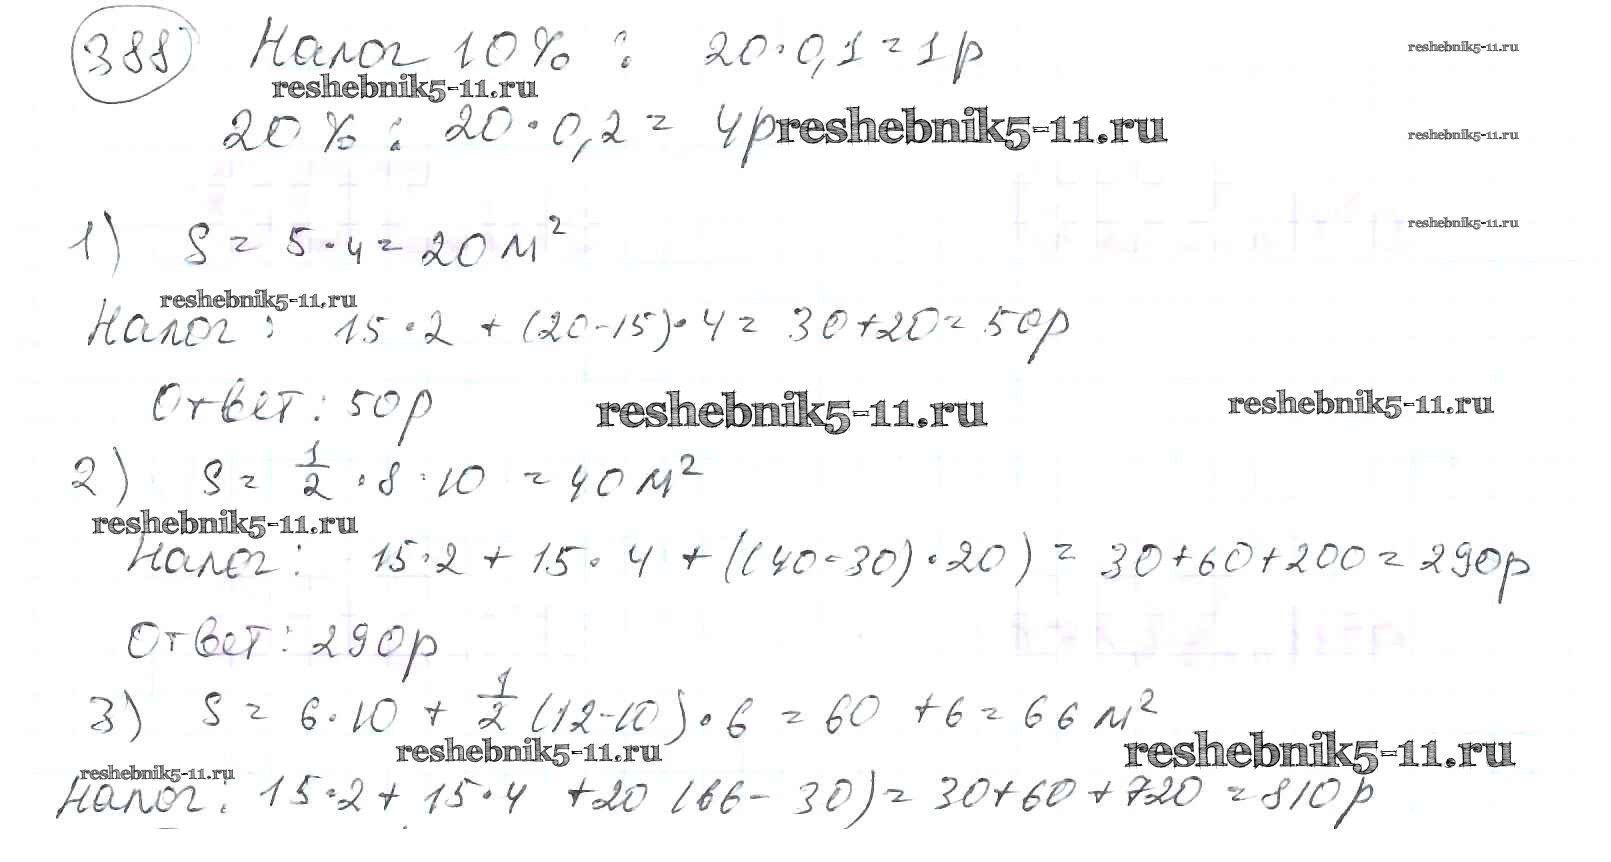 388 Налог 10% : 20·0,1=1р
reshebnik5-11.ru
reshebnik5-11.ru
20% : 20·0,2= 4р
reshebnik5-11.ru
reshebnik5-11.ru
reshebnik5-11.ru
1) S = 5·4=20м²
reshebnik5-11.ru
Налог: 15·2 + (20-15)·4= 30+20=50р
Ответ: 50р
reshebnik5-11.ru
reshebnik5-11.ru
2) S = 1/2 ·8·10 =40м²
reshebnik5-11.ru
Налог: 15·2 + 15·4 + ((40-30)·20) = 30+60+200=290р
Ответ: 290р
3) S = 6·10 + 1/2 (12-10)·6 =60 +6=66м²
reshebnik5-11.ru
reshebnik5-11.ru
reshebnik5-11.ru
Налог: 15·2+ 15·4 +20(66-30)= 30+60+720 =810р